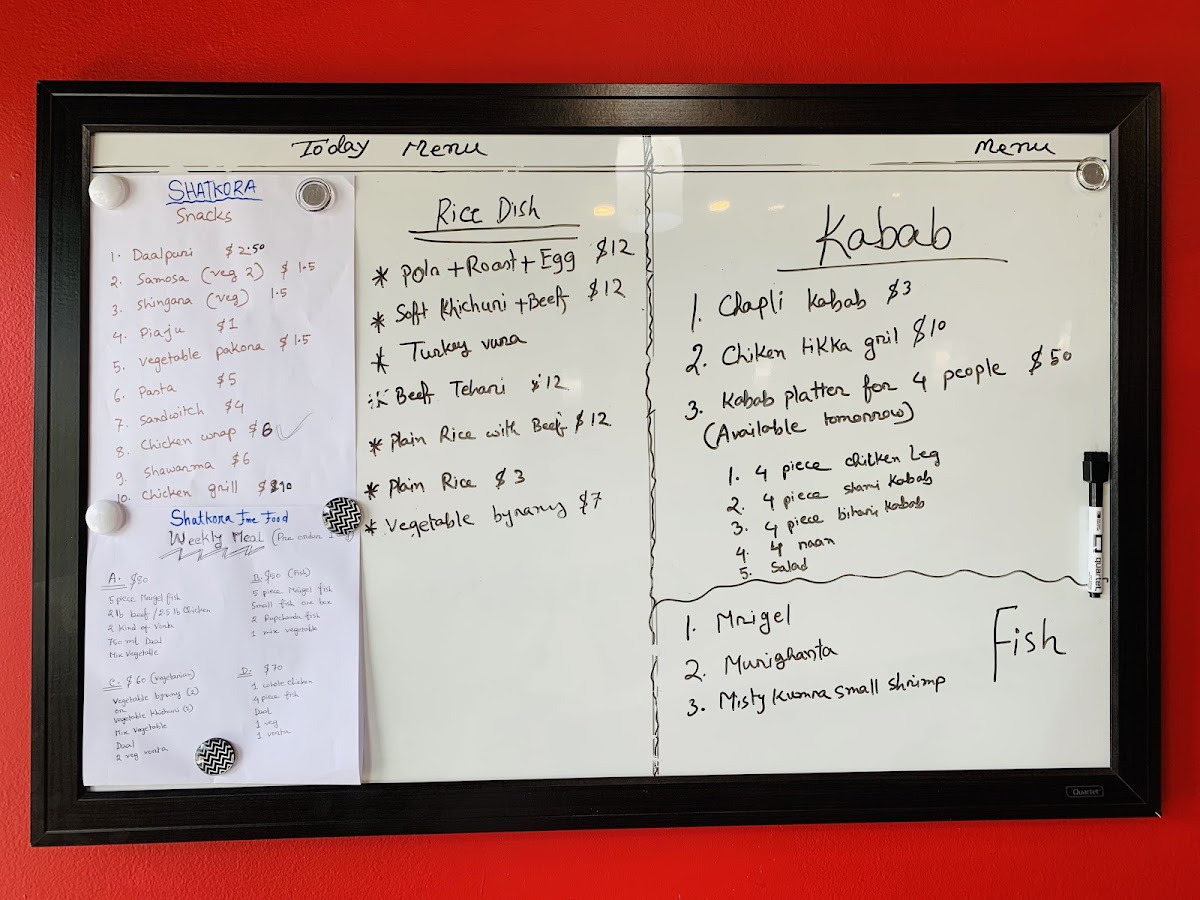 Today Menu
Menu
SHATKORA
Snacks
1. Daalpuri $2.50
2. Samosa (veg 2) $1.5
3. Shingara (veg) 1.5
4. Piaju $1
5. vegetable pakora $1.5
6. Pasta $5
7. Sandwitch $4
8. Chicken wrap $6
9. Shawarma $6
10. Chicken grill
Shatkora Food
Weekly Meal (Pre order
A. $80
5 piece Mrigel fish
2 lb beef / 2.5 lb Chicken
2 kind of Vorta
750 ml Daal
Mix Vegetable
B. (Fish)
5 piece Mrigel fish
Small fish one box
2 Rupchanda fish
1 mix vegetable
C. $60 (vegetarian)
Vegetable byrany (2)
or
Vegetable khichuri (3)
Mix Vegetable
Daal
2 veg vorta
D. $70
1 whole chicken
4 piece fish
Daal
1 veg
1 vorta
Rice Dish
* Pola + Roast + Egg $12
* Soft Khichuri + Beef $12
* Turkey vuna
* Beef Tehari $12
* Plain Rice with Beef $12
* Plain Rice $3
* Vegetable byrany $7
Kabab
1. Chapli kabab $3
2. Chiken tikka gril $10
3. Kabab platter for 4 people $50
(Available tomorrow)
1. 4 piece chicken Leg
2. 4 piece shami kabab
3. 4 piece bihari kabab
4. 4 naan
5. Salad
Fish
1. Mrigel
2. Murighanta
3. Misty kumra small shrimp
quartet
Quartet